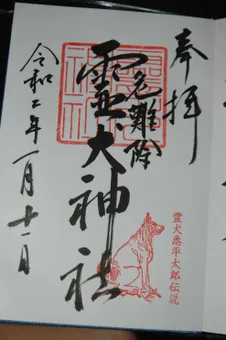 奉拝
危難除
霊犬神社
令和二年一月十一日
霊犬悉平太郎伝説